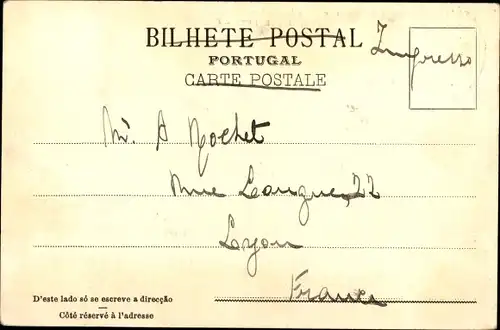 BILHETE POSTAL
Impresso
PORTUGAL
CARTE POSTALE
Mr. A Rochet
Rue Longue, 22
Lyon
France
D'este lado só se escreve a direcção
Côté réservé à l'adresse